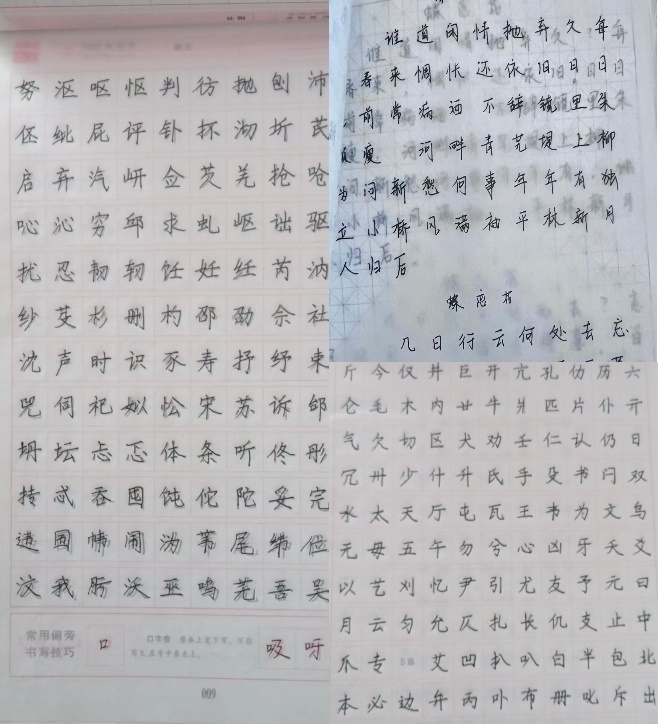 努 沤 呕 怄 判 彷 抛 刨 沛
伾 纰 屁 评 钋 抔 沏 圻 芪
启 弃 汽 岍 佥 芡 羌 抢 呛
吣 沁 穷 邱 求 虬 岖 诎 驱
扰 忍 韧 轫 饪 妊 纴 芮 汭
纱 芟 杉 删 杓 邵 劭 佘 社
沈 声 时 识 豕 寿 抒 纾 束
兕 伺 祀 姒 忪 宋 苏 诉 邰
坍 坛 忐 忑 体 条 听 佟 彤
抟 忒 吞 囤 饨 佗 陀 妥 完
违 围 帏 闱 沩 苇 尾 纬 位
汶 我 肟 沃 巫 呜 芜 吾 吴
常用偏旁
书写技巧
口
吸 呀
009
谁 道 闲 情 抛 弃 久 每
春 来 惆 怅 还 依 旧 日 日
前 常 病 酒 不 辞 镜 里 朱
瘦 河 畔 青 芜 堤 上 柳
为 问 新 愁 何 事 年 年 有 独
立 小 桥 风 满 袖 平 林 新 月
人 归 后
蝶 恋 花
几 日 行 云 何 处 去 忘
斤 今 仅 井 巨 开 亢 孔 仂 历 六
仑 毛 木 内 廿 牛 爿 匹 片 仆 亓
气 欠 切 区 犬 劝 壬 仁 认 仍 日
冗 卅 少 什 升 氏 手 殳 书 闩 双
水 太 天 厅 屯 瓦 王 韦 为 文 乌
无 毋 五 午 勿 兮 心 凶 牙 夭 爻
以 艺 刈 忆 尹 引 尤 友 予 元 曰
月 云 匀 允 仄 扎 长 仉 支 止 中
爪 专 艾 凹 扒 叭 白 半 包 北
本 必 边 弁 丙 卟 布 册 叱 斥 出